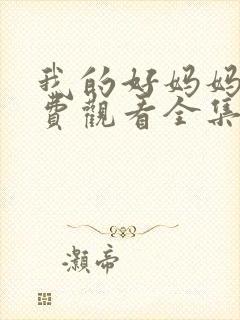 我的好妈妈
费觀看全集
灏帝